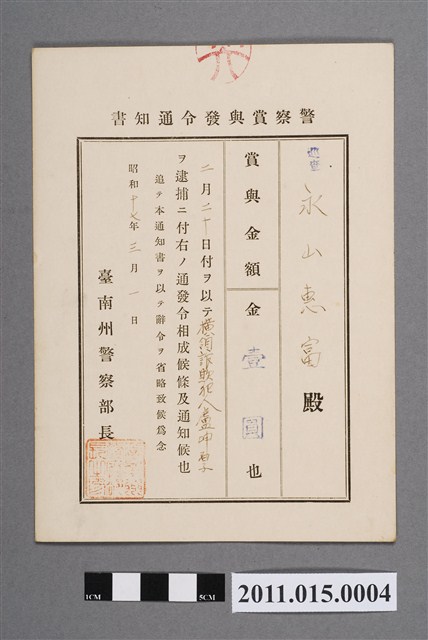 警察賞與發令通知書
永山惠富殿
賞與金額
金壹圓也
二月二十日付ヲ以テ橫領詐欺犯人
ヲ逮捕ニ付右ノ通發令相成候條及通知候也
追テ本通知書ヲ以テ辭令ヲ省略致候爲念
昭和十七年三月一日
臺南州警察部長
1CM
5CM
2011.015.0004